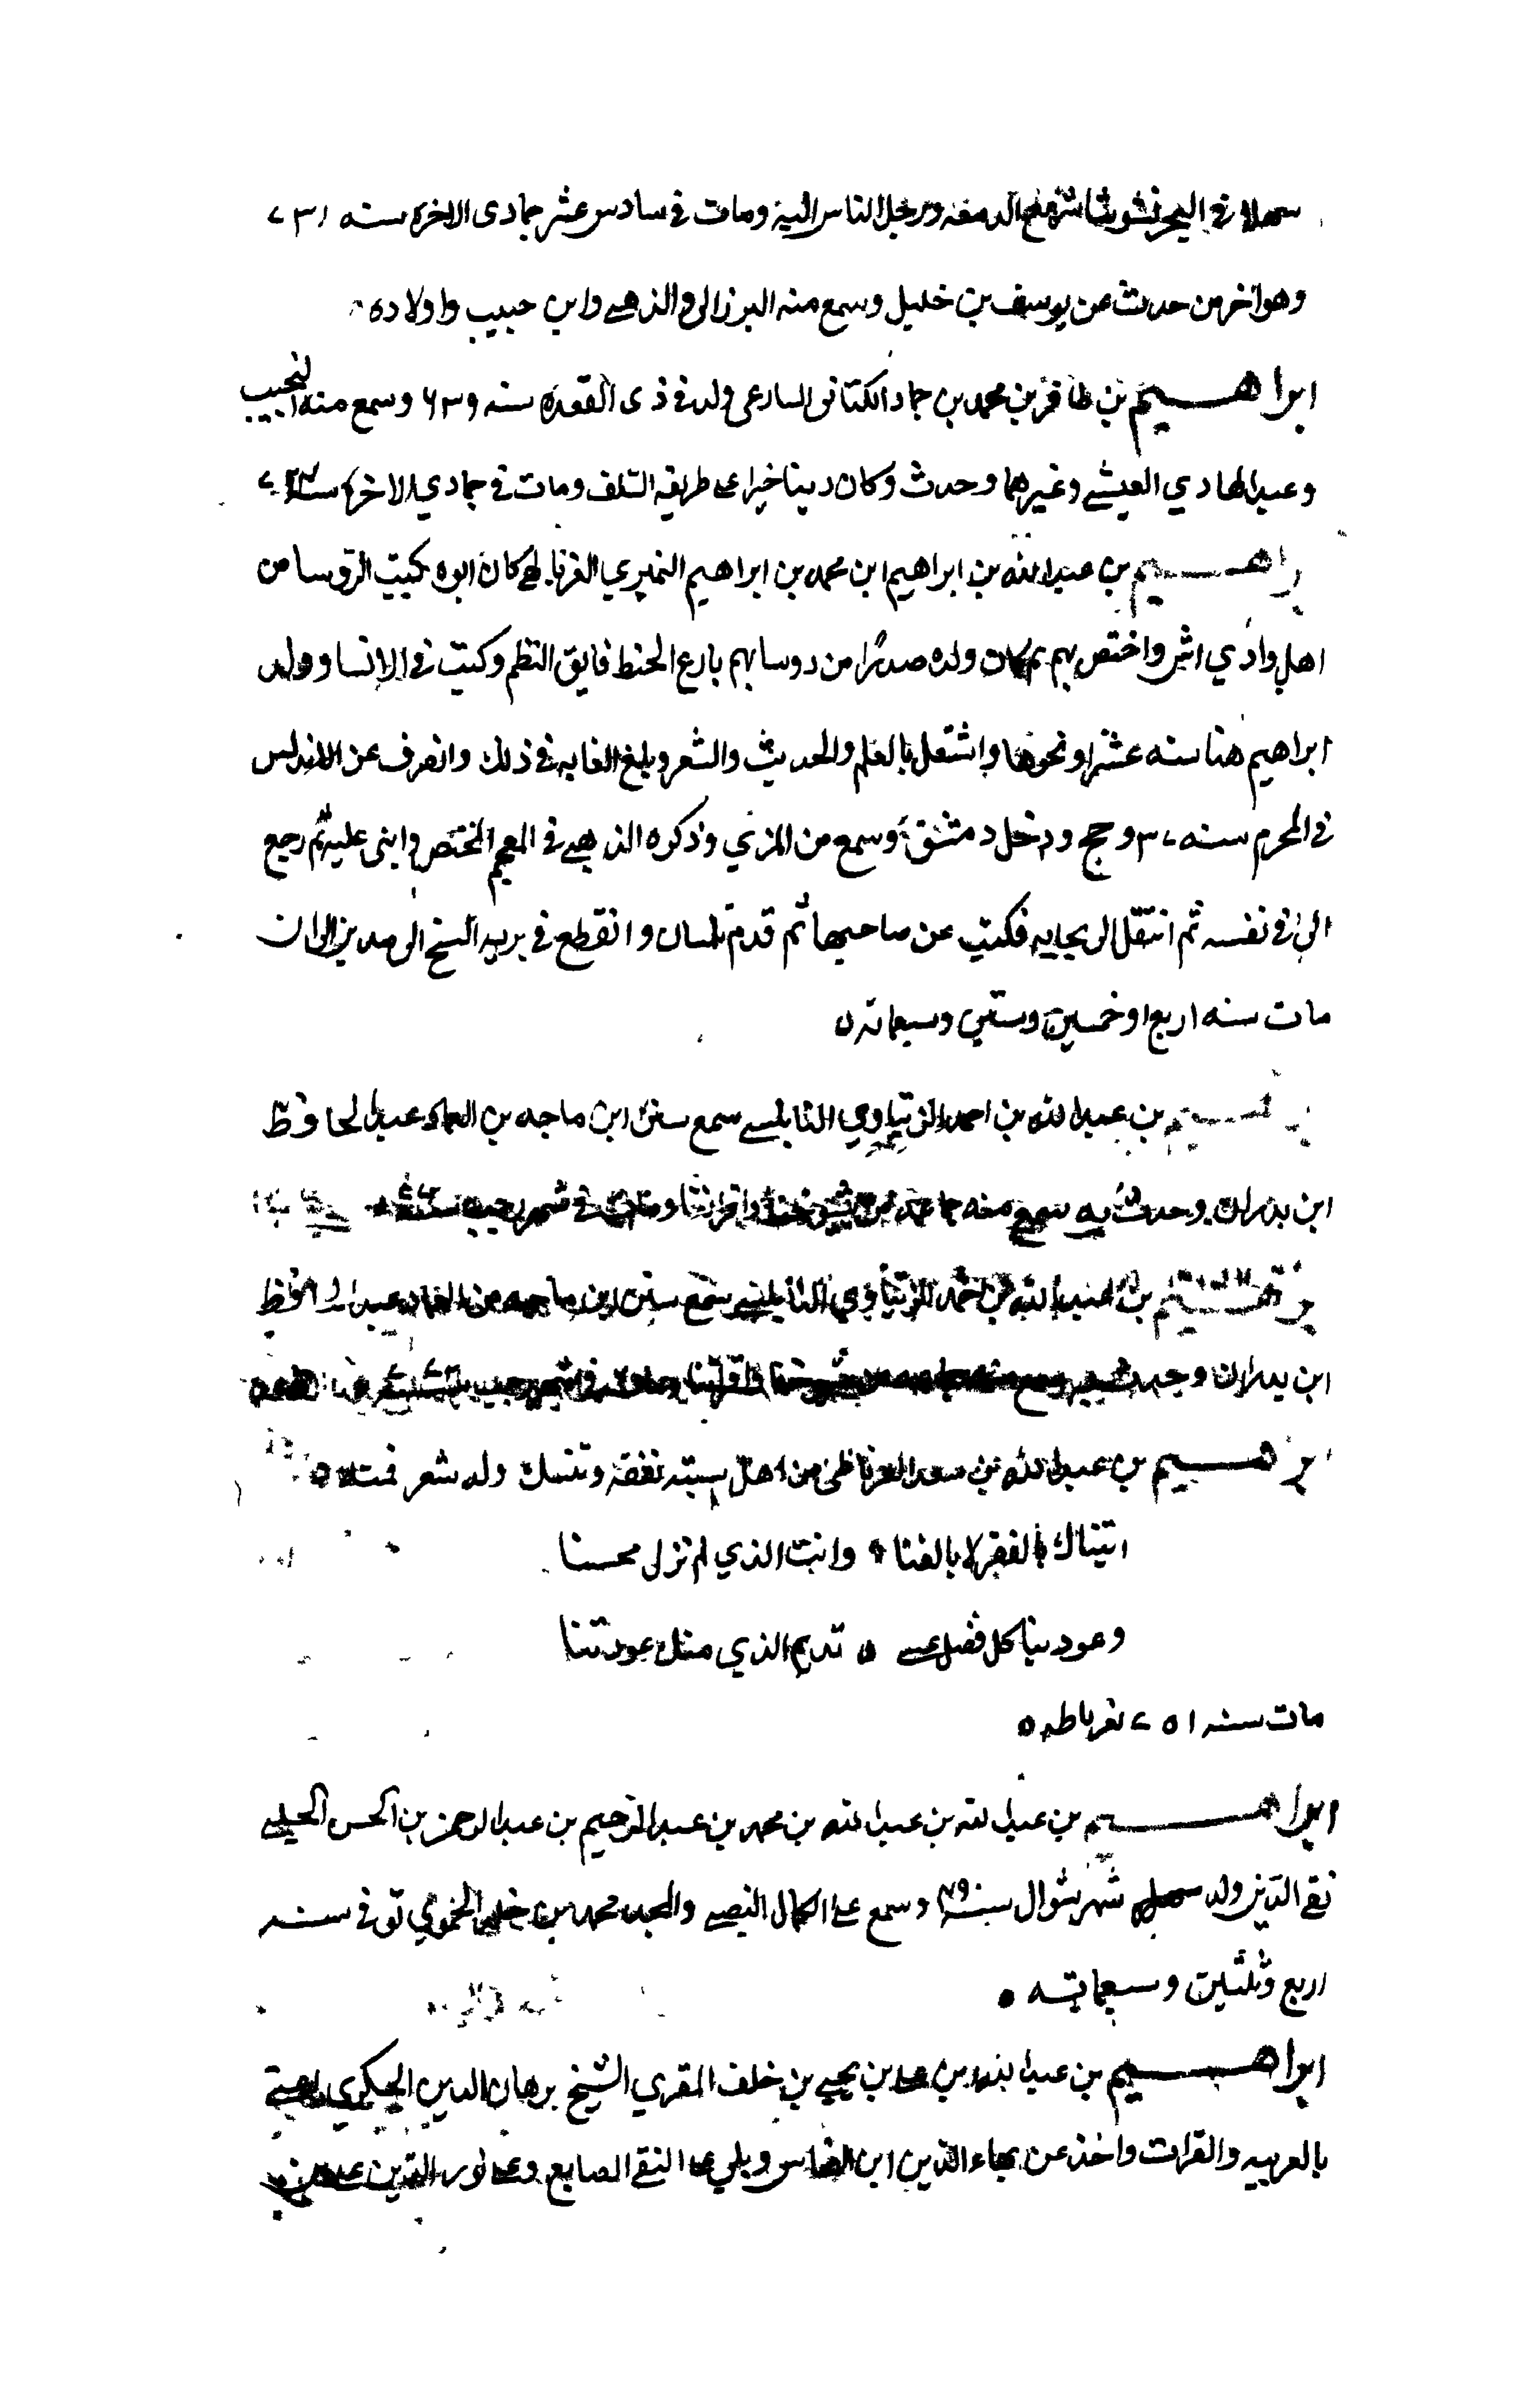 سهلا في البحر نشو شاشهم الدمغه ورحل الناس اليه ومات في سادس عشر جمادى الاخره سنه ٧٣١
وهو اخر من حدث عن يوسف بن خليل وسمع منه البرزالى والذهبي وابن حبيب واولاده
ابراهيم بن ظافر بن محمد بن حماد الكتانى السارعى ولد في ذى القعده سنه وسمع منه النجيب
وعبد الهادي العيشي وغيرهما وحدث وكان دينا خيرا على طريقه السلف ومات في جمادي الاخره سنه
ابراهيم بن عبد الله بن ابراهيم ابن محمد بن ابراهيم النميري الغرناطي كان ابوه كبيت الروسا من
اهل وادي اش واختص بهم وكان ولده صدرا من روسايهم بارع الخط فايق النظم وكتب في الانسا وولد
ابراهيم هنا سنه عشر او نحوها واشتغل بالعلم والحديث والشعر وبلغ الغايه في ذلك وانصرف عن الاندلس
في المحرم سنه وحج ودخل دمشق وسمع من المزي وذكره الذهبي في المعجم المختص واثنى عليه ثم رجع
الى في نفسه ثم انتقل الى بجايه فكتب عن صاحبها ثم قدم تلمسان وانقطع في بريه الشيخ الى مدين الى ان
مات سنه اربع او خمسين وستين وسبعمائه
ابراهيم بن عبد الله بن احمد الزيتاوي النابلسي سمع سنن ابن ماجه من العماد عبد الحافظ
ابن بدران وحدث به سمع منه جماعه من شيوخنا واقراننا ومات في شهر رجب سنه
ابراهيم بن عبد الله بن احمد الزيتاوي النابلسي سمع سنن ابن ماجه من العماد عبد الحافظ
ابن بدران وحدث
ابراهيم بن عبد الله بن سعد الغرناطى من اهل سبته تفقه وتنسك وله شعر فمنه
اتيناك بالفقر لا بالغنا وانت الذي لم تزل محسنا
وعودتنا كل فضل عسى تديم الذي منك عودتنا
مات سنه ٧٥١ بغرناطه
ابراهيم بن عبد الله بن عبد الله بن محمد بن عبد الرحيم بن عبد الرحمن بن الحسن الحلبي
تقي الدين ولد شهر شوال سنه وسمع على الكمال النصيبي والمجد محمد بن خلد الحموي توفي سنه
اربع وثلثين وسبعمايه
ابراهيم بن عبد الله بن علي بن يحيى بن خلف المقري الشيخ برهان الدين الحكري اعتنى
بالعربيه والقرات واخذ عن بهاء الدين ابن النحاس وتلي على التقي الصايع وعلى نور الدين علي بن